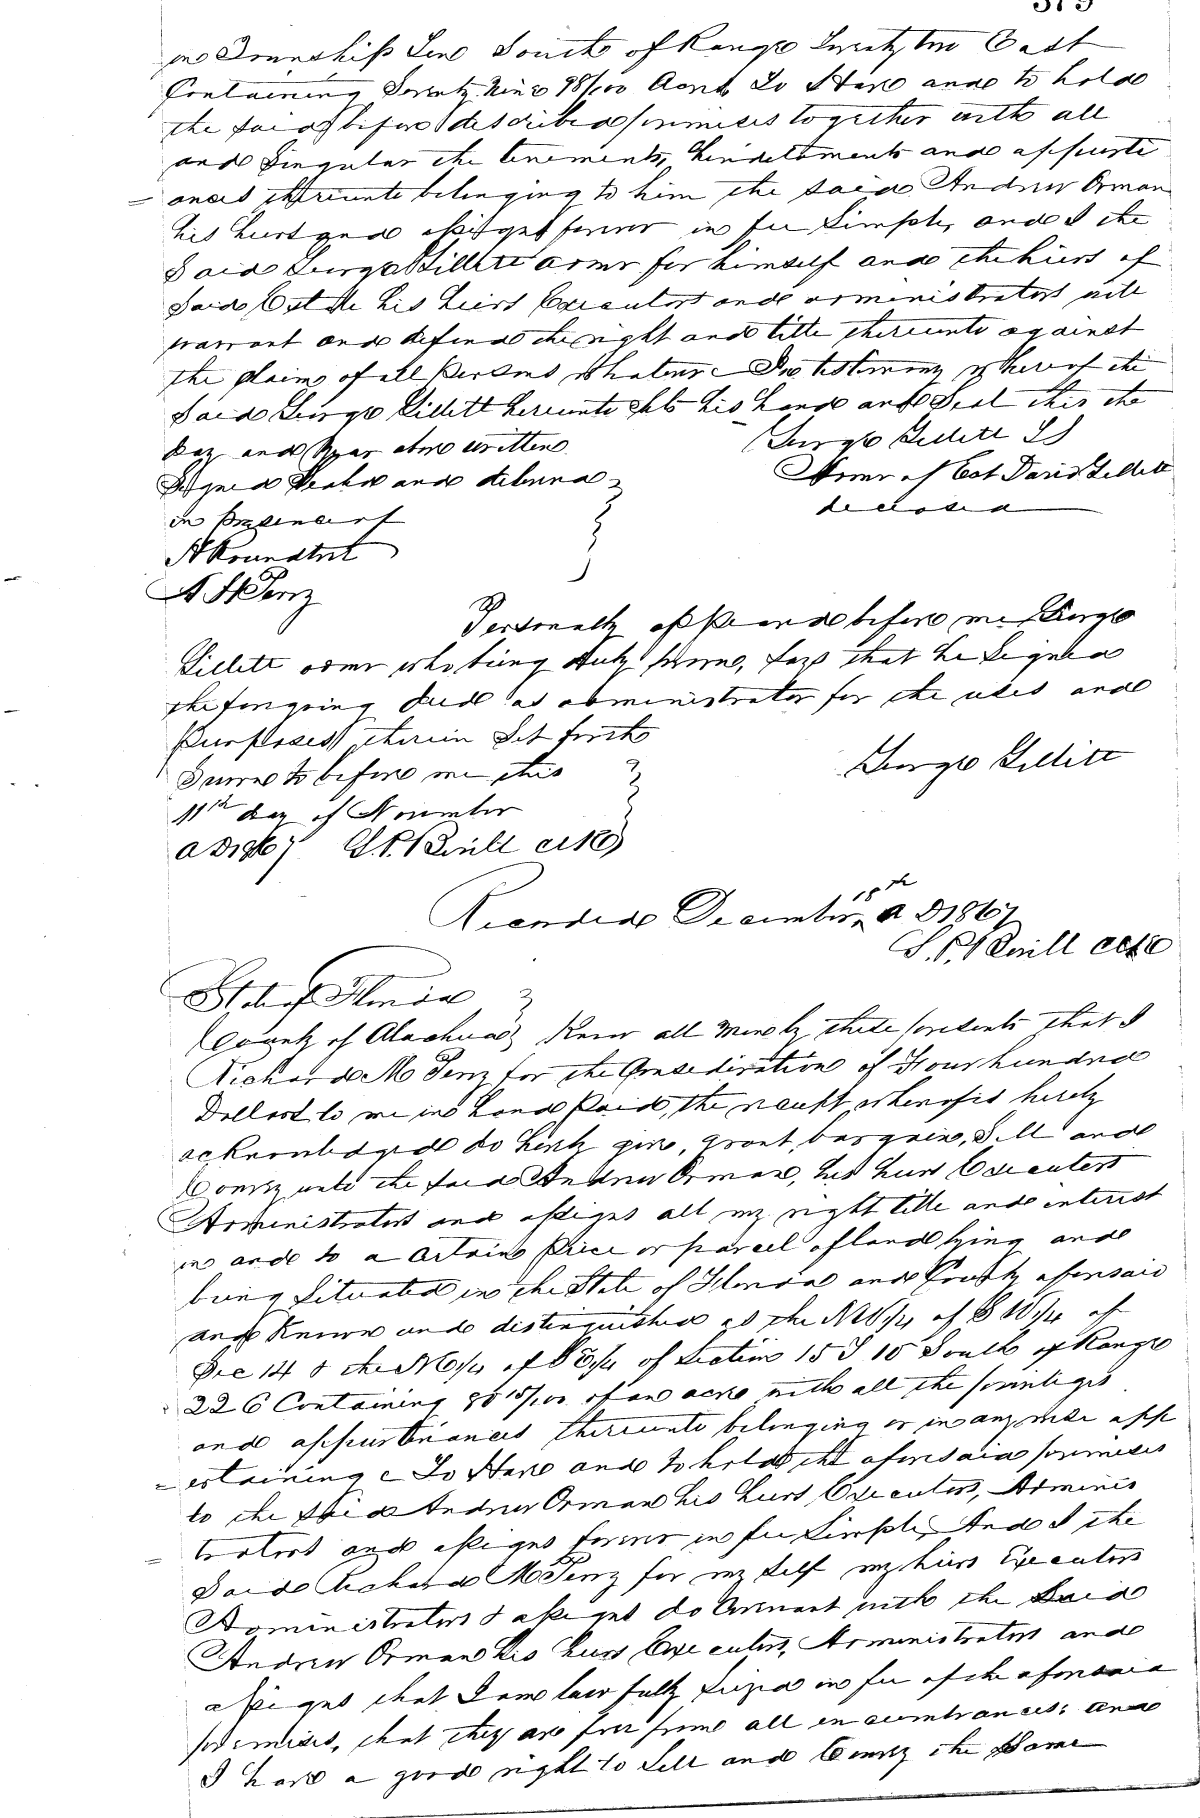 379
in Township Ten South of Range Twenty two East
Containing Seventy Nine 98/100 Acres To Have and to hold
the said before described premises together with all
and Singular the tenements, heriditaments and appurti
= ances thereunto belonging to him the said Andrew Orman
his heirs and assigns forever in fee Simple, and I the
Said George Gillett admr for himself and the heirs of
Said Estate his heirs Executors and administrators will
warrant and defend the right and title thereunto against
the claims of all Persons whatever In testimony whereof the
Said George Gillett hereunto sets his hand and Seal this the
day and year above written
George Gillett LS
Signed Sealed and delivered
Admr of Est David Gillett
in Presence of
deceased
A Roundtree
A H Perry
Personally appeared before me George
Gillett admr who being duly sworn, says that he Signed
the forgoing deed as administrator for the uses and
Purposes therein Set forth
George Gillett
Sworn to before me this
11th day of November
A D 1867
Recorded December 18th A D 1867
State of Florida
County of Alachua Know all men by these presents that I
Richard M Perry for the Consideration of Four hundred
Dollars to me in hand paid, the receipt whereof is hereby
acknowledged do hereby give, grant, bargain, Sell and
Convey unto the said Andrew Orman, his heirs Executors
Administrators and assigns all my right title and interest
in and to a certain Piece or parcel of land lying and
being Situated in the State of Florida and County aforesaid
and Known and distinguished as the NW1/4 of SW1/4 of
Sec 14 & the NE1/4 of SE1/4 of Section 15 T 10 South of Range
22 E Containing 80 15/100 of an acre with all the priviliges
and appurtinances thereunto belonging or in any wise app
= ertaining To Have and to hold the aforesaid premises
to the said Andrew Orman his heirs Executors, Adminis
= trators and assigns forever in fee Simple, And I the
Said Richard M Perry for my Self my heirs Executors
Administrators & assigns do Covenant with the Said
Andrew Orman his heirs Executors, Administrators and
assigns that I am lawfully Seized in fee of the aforesaid
premises, that they are free from all incumbrances; and
I have a good right to Sell and Convey the Same